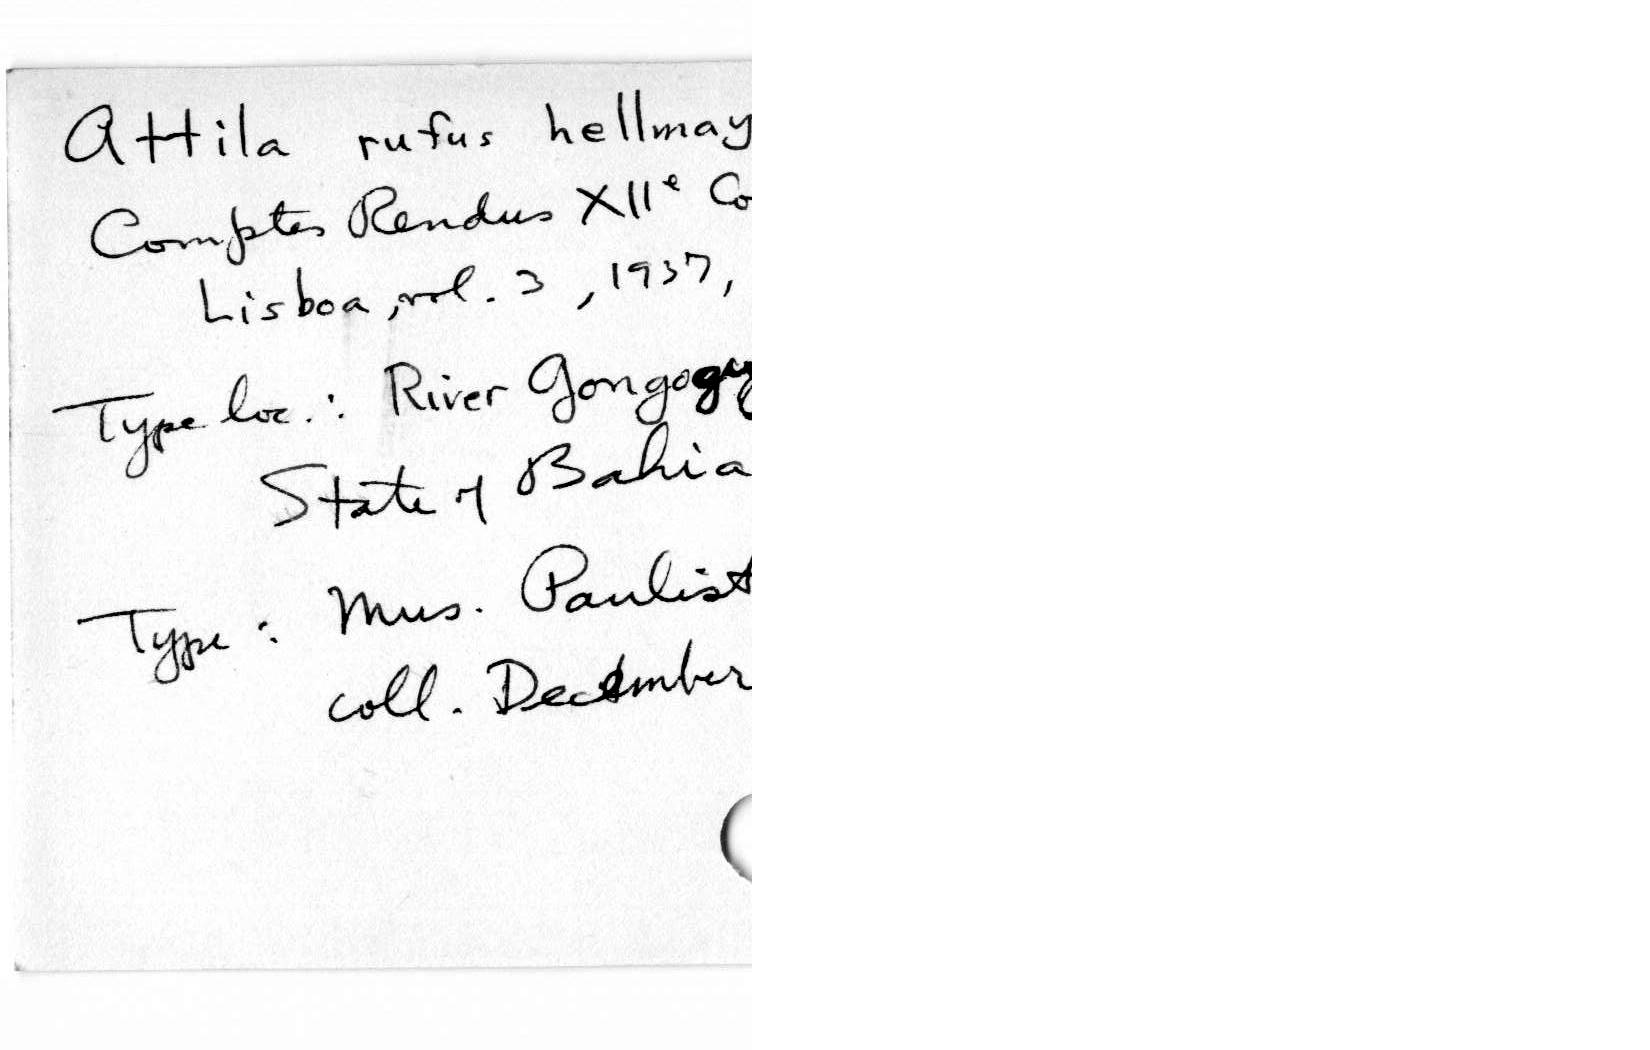 Attila rufus hellmay
Comptes Rendus XIIe Co
Lisboa, vol. 3, 1937,
Type loc.: River Gongogy
State of Bahia
Type: Mus. Paulist
coll. December